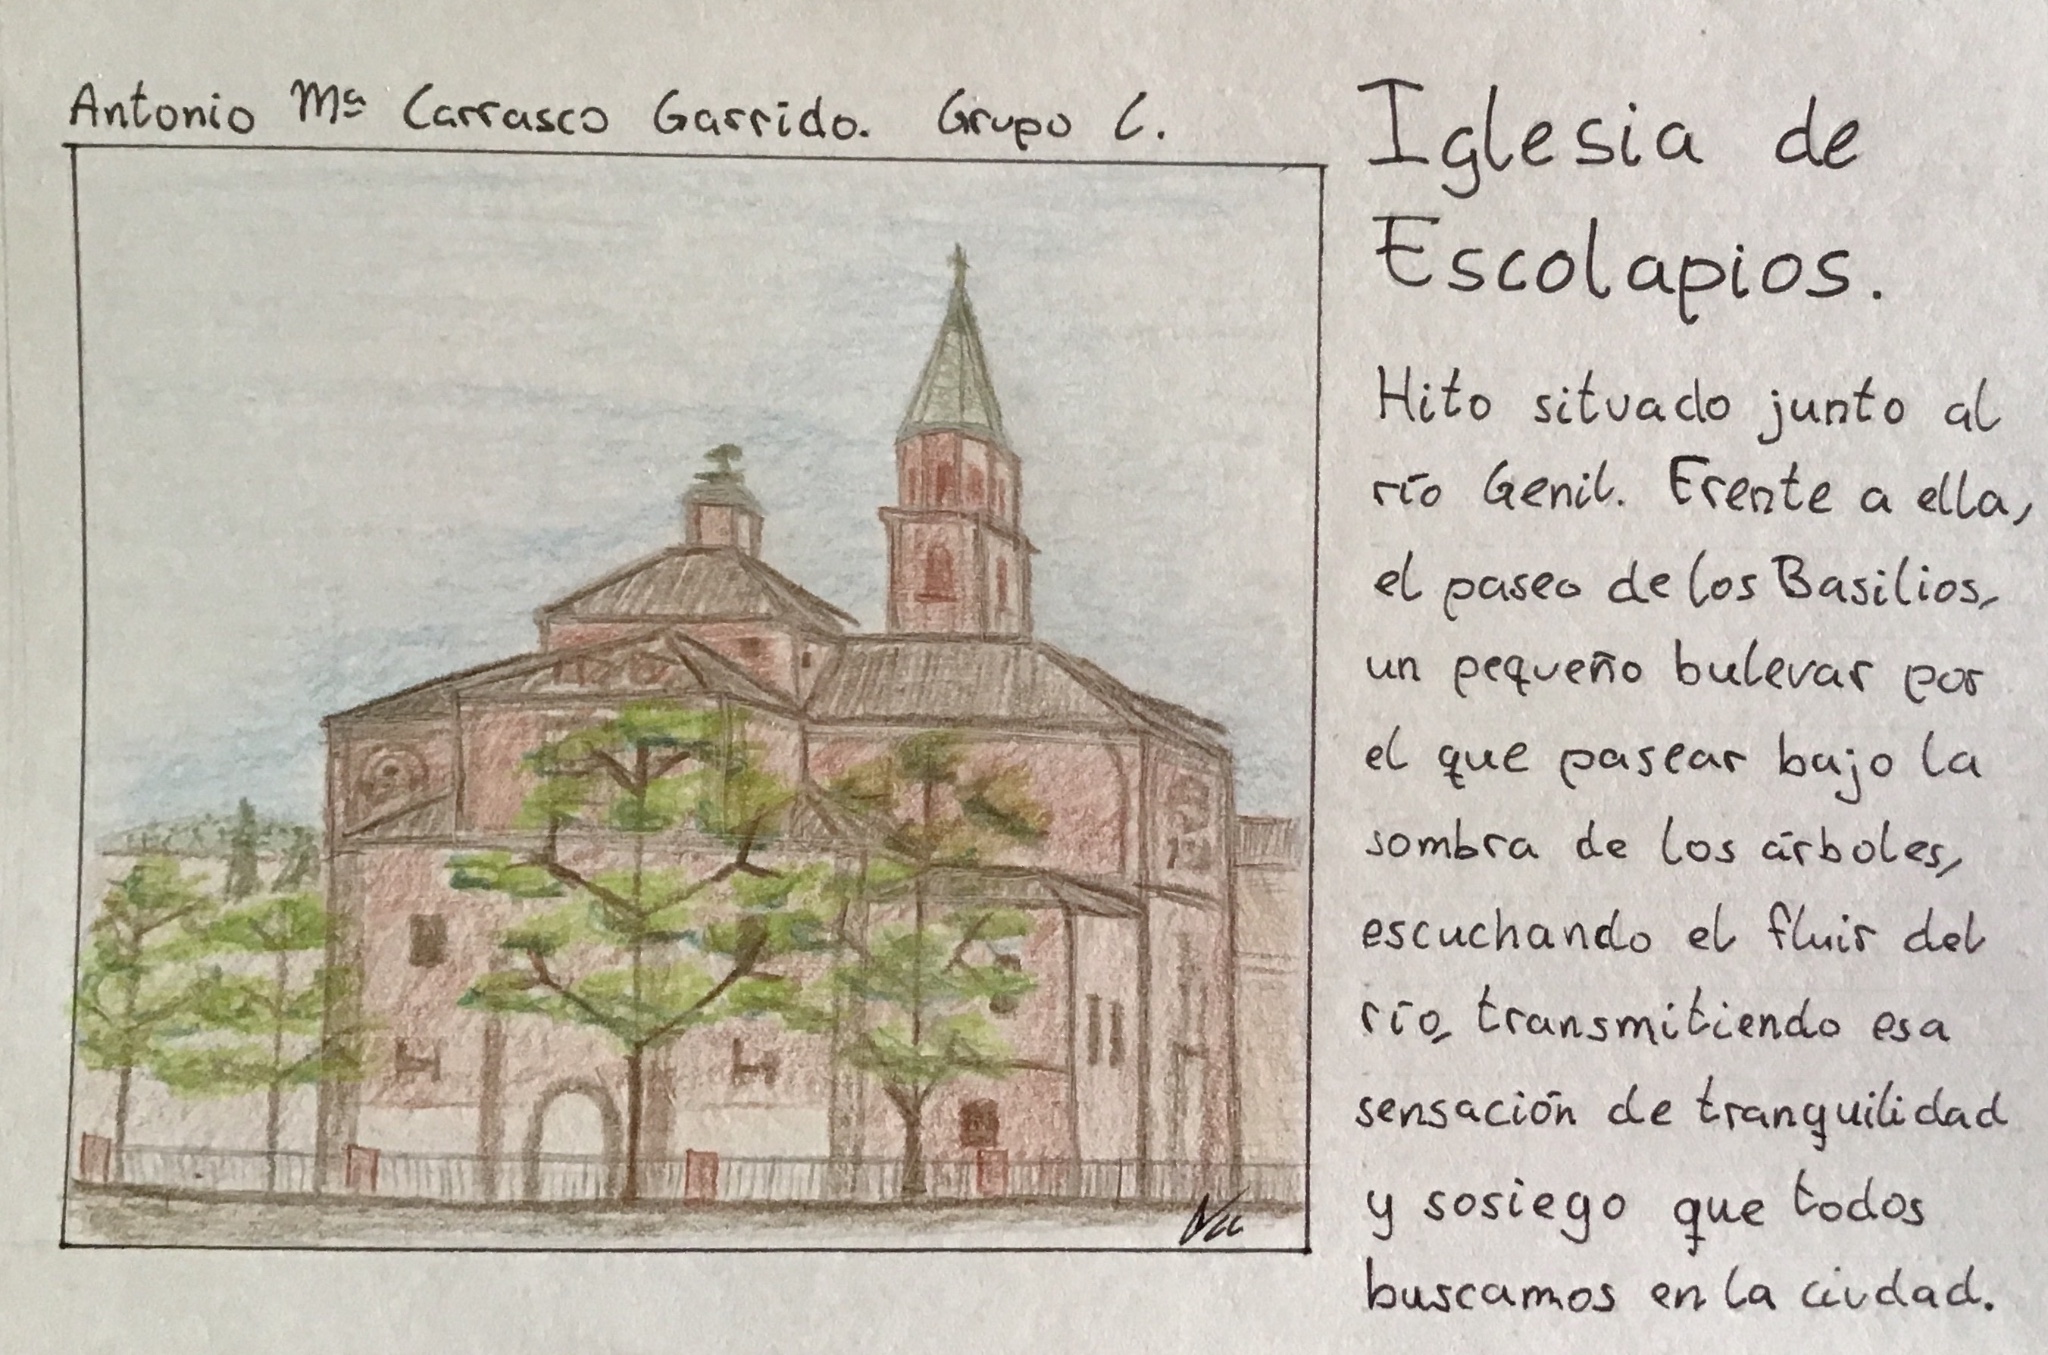 Antonio Mª Carrasco Garrido. Grupo C.
Iglesia de
Escolapios.
Hito situado junto al
río Genil. Frente a ella,
el paseo de los Basilios,
un pequeño bulevar por
el que pasear bajo la
sombra de los árboles,
escuchando el fluir del
río, transmitiendo esa
sensación de tranquilidad
y sosiego que todos
buscamos en la ciudad.